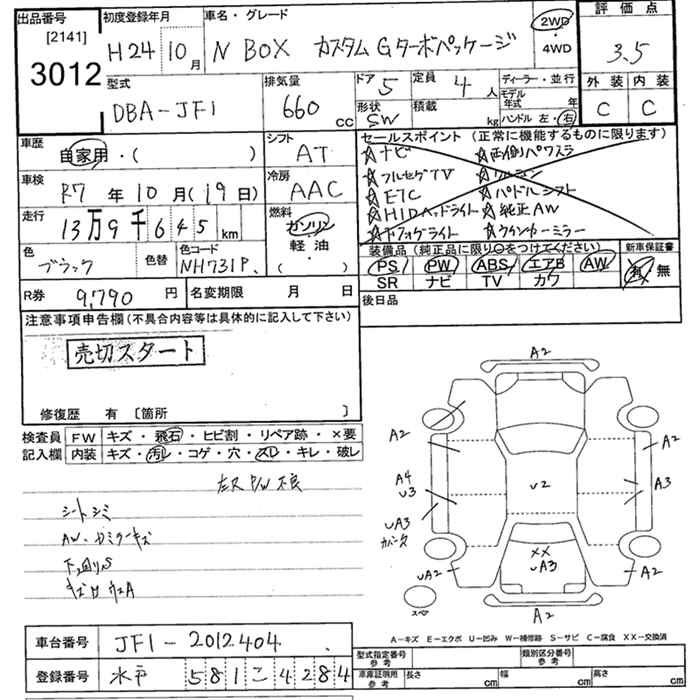 出品番号 [2141] 3012
初度登録年月 H24 10月
車名・グレード N BOX カスタムGターボパッケージ
2WD・4WD
評価点 3.5
型式 DBA-JF1
排気量 660 cc
ドア 5 定員 4人
形状 SW 積載 kg
ディーラー・並行
モデル年式 年
ハンドル 左・右
外装 内装
C C
車歴 自家用・( )
シフト AT
セールスポイント (正常に機能するものに限ります)
☆ナビ ☆両側パワスラ
☆フルセグTV
☆ETC ☆パドルシフト
☆HIDヘッドライト ☆純正AW
☆フォグライト ☆ウインカーミラー
車検 R7年10月(19日)
冷房 AAC
走行 13万9千645km
燃料 ガソリン 軽油 ( )
色 ブラック 色替 色コード NH731P
装備品 (純正品に限り○をつけてください) 新車保証書
PS PW ABS エアB AW 有・無
SR ナビ TV カワ
R券 9,790円 名変期限 月 日
後日品
注意事項申告欄(不具合内容等は具体的に記入して下さい)
売切スタート
修復歴 有 〔箇所 〕
検査員 FW キズ・飛石・ヒビ割・リペア跡・×要
記入欄 内装 キズ・汚レ・コゲ・穴・スレ・キレ・破レ
シートシミ
AW・カミラーキズ
下廻りS
A2
A2 A2
A4 U3 U2 A3
UA3
XX UA3
UA2 A2
スペア
A2
A-キズ E-エクボ U-凹み W-補修跡 S-サビ C-腐食 XX-交換済
車台番号 JF1-2012404
登録番号 水戸 581 こ 4284
型式指定番号 参考 類別区分番号 参考
車庫証明用 参考 長さ cm 幅 cm 高さ cm